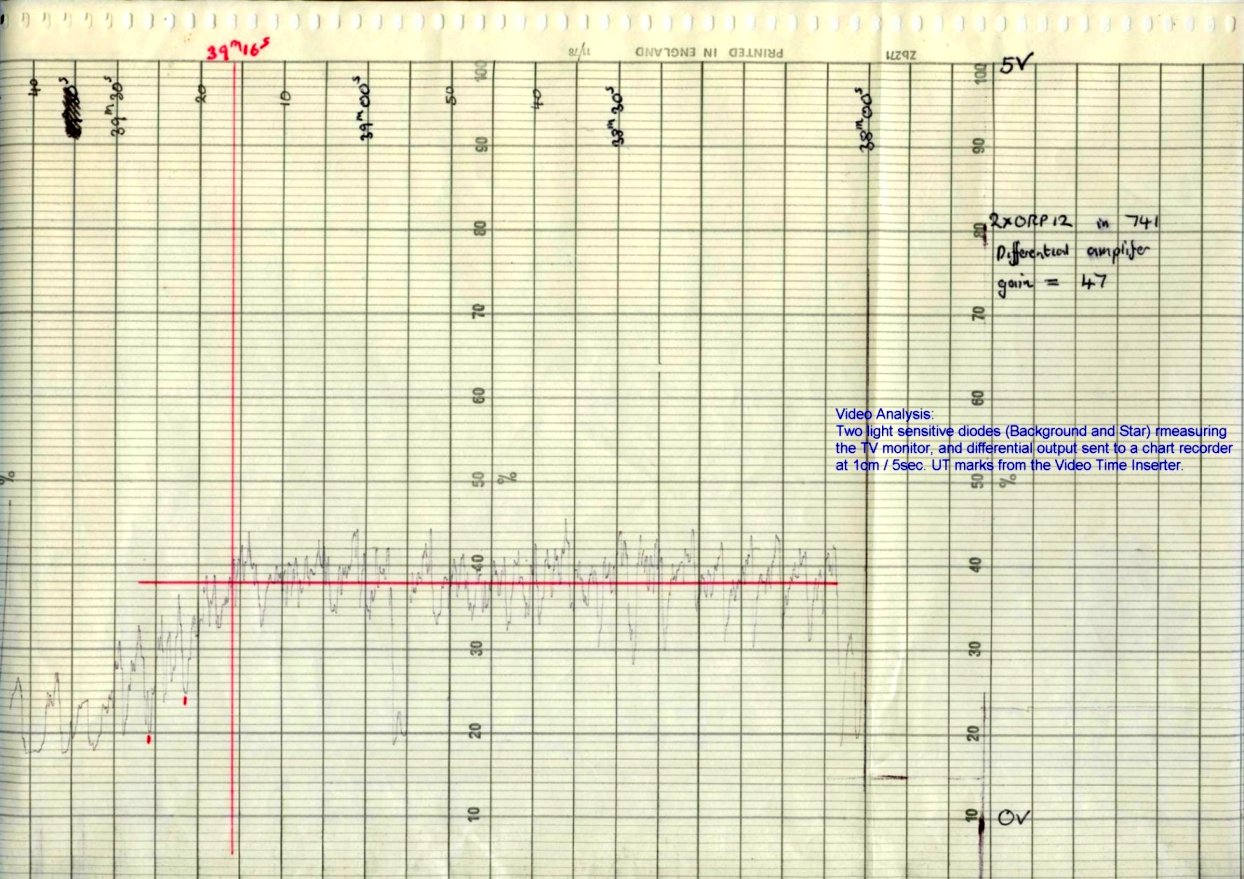 39ᵐ16ˢ
11/78 PRINTED IN ENGLAND Zb271
40 39ᵐ30ˢ 20 10 39ᵐ00ˢ 50 40 38ᵐ30ˢ 38ᵐ00ˢ
100 100 5V
90 90
80 80
2xORP12 in 741
Differential amplifer
gain = 47
70 70
60 60
Video Analysis:
Two light sensitive diodes (Background and Star) rmeasuring
the TV monitor, and differential output sent to a chart recorder
at 1cm / 5sec. UT marks from the Video Time Inserter.
% 50 % 50 %
40 40
30 30
20 20
10 10 0V